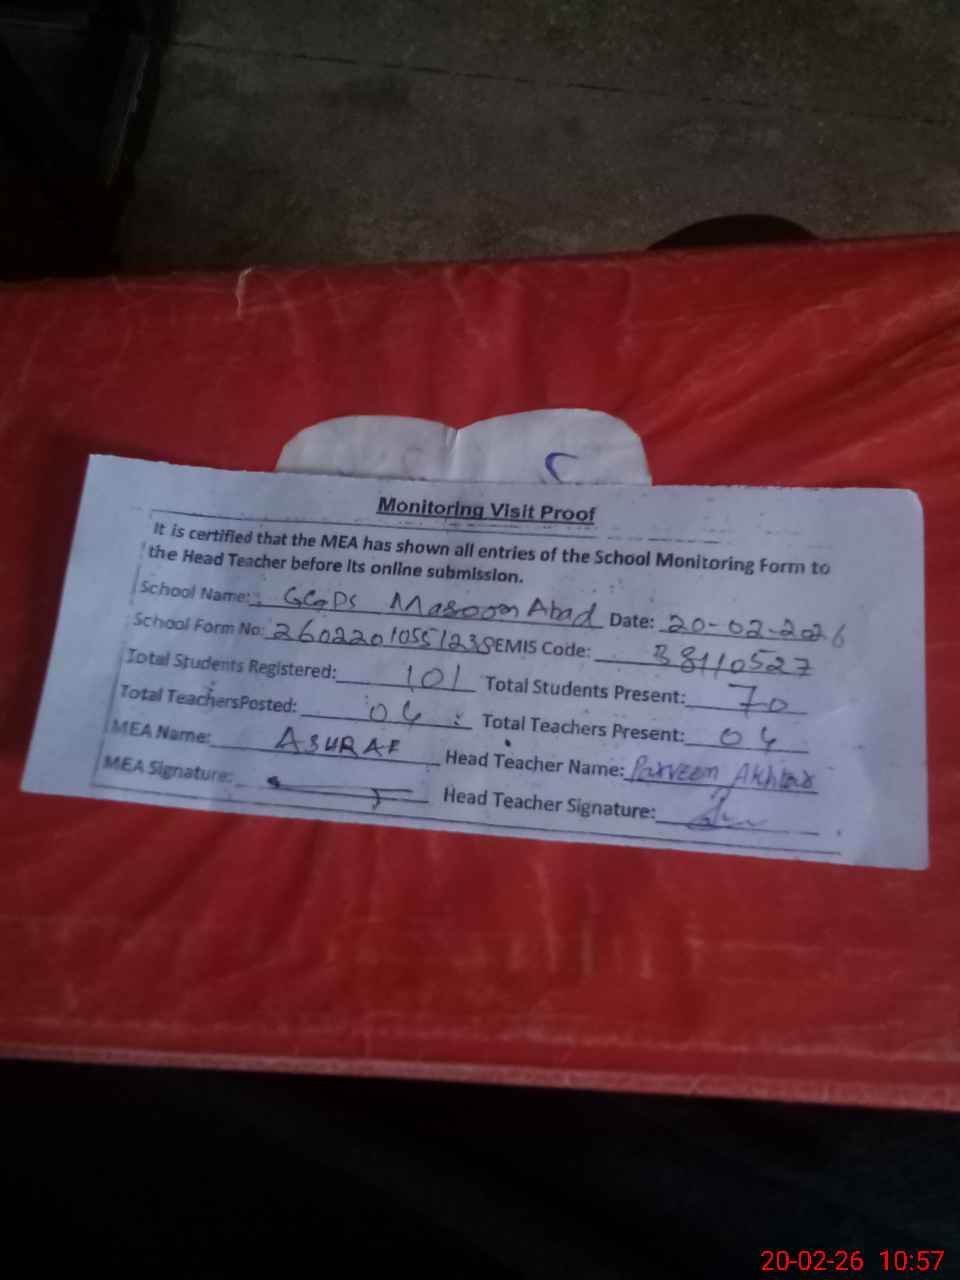 Monitoring Visit Proof
It is certified that the MEA has shown all entries of the School Monitoring Form to
the Head Teacher before its online submission.
School Name: GGPS Masoom Abad Date: 20-02-2026
School Form No: 26022010551238 EMIS Code: 38110527
Total Students Registered: 101 Total Students Present: 70
Total TeachersPosted: 04 Total Teachers Present: 04
MEA Name: ASHRAF Head Teacher Name: Parveen Akhtar
MEA Signature: Head Teacher Signature:
20-02-26 10:57